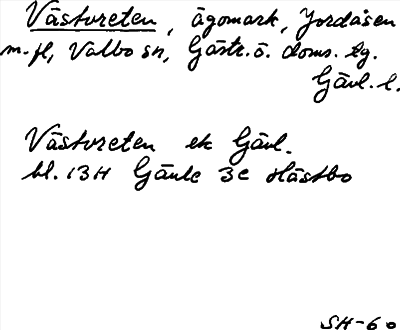 Västvreten, ägomark, Jordåsen
m.fl, Valbo sn, Gästr. ö. doms. lg.
Gävl. l.
Västvreten ek Gävl.
bl. 13H Gävle 3c Hästbo
SH-60